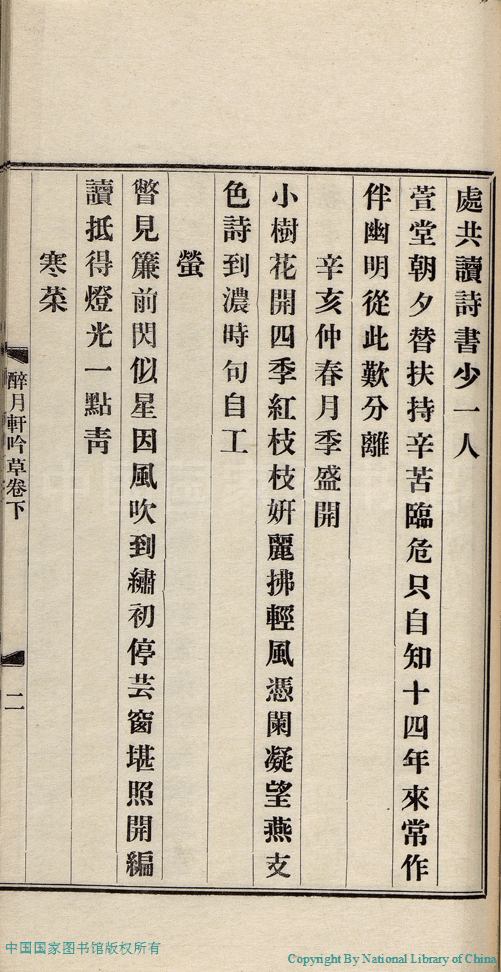 處共讀詩書少一人
萱堂朝夕替扶持辛苦臨危只自知十四年來常作
伴幽明從此歎分離
辛亥仲春月季盛開
小樹花開四季紅枝枝妍麗拂輕風憑闌凝望燕支
色詩到濃時句自工
螢
瞥見簾前閃似星因風吹到繡初停芸窗堪照開編
讀抵得燈光一點靑
寒菜
醉月軒吟草卷下
二
中国国家图书馆版权所有
Copyright By National Library of China